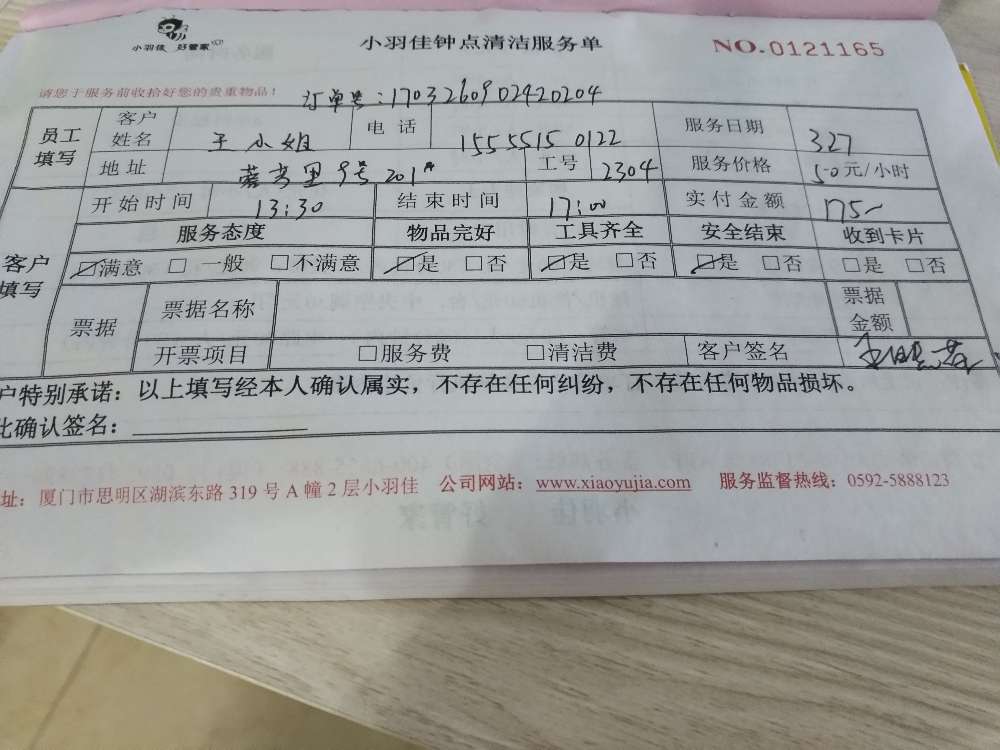 小羽佳 好管家
小羽佳钟点清洁服务单
NO.0121165
请您于服务前收拾好您的贵重物品!
订单号:1703260902420204
员工填写 客户姓名 王小姐 电话 1555515 0122 服务日期 327
地址 里9号201A 工号 2304 服务价格 50元/小时
客户填写 开始时间 13:30 结束时间 17:00 实付金额 175-
服务态度 物品完好 工具齐全 安全结束 收到卡片
☑满意 □一般 □不满意 ☑是 □否 ☑是 □否 ☑是 □否 □是 □否
票据 票据名称 票据金额
开票项目 □服务费 □清洁费 客户签名
户特别承诺:以上填写经本人确认属实,不存在任何纠纷,不存在任何物品损坏。
此确认签名:
址:厦门市思明区湖滨东路 319 号 A 幢 2 层小羽佳 公司网站:www.xiaoyujia.com 服务监督热线:0592-5888123